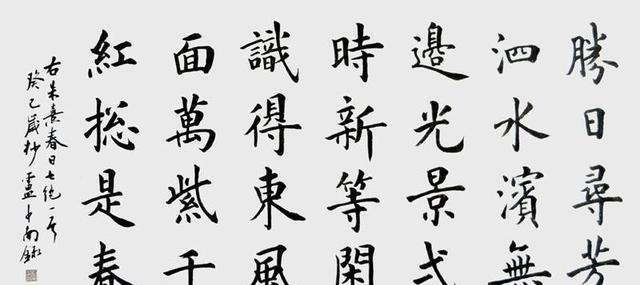 勝日尋芳
泗水濱無
邊光景弌
時新等閑
識得東風
面萬紫千
紅捴是春
右朱熹春日七絶一首
癸巳歲杪盧中南錄